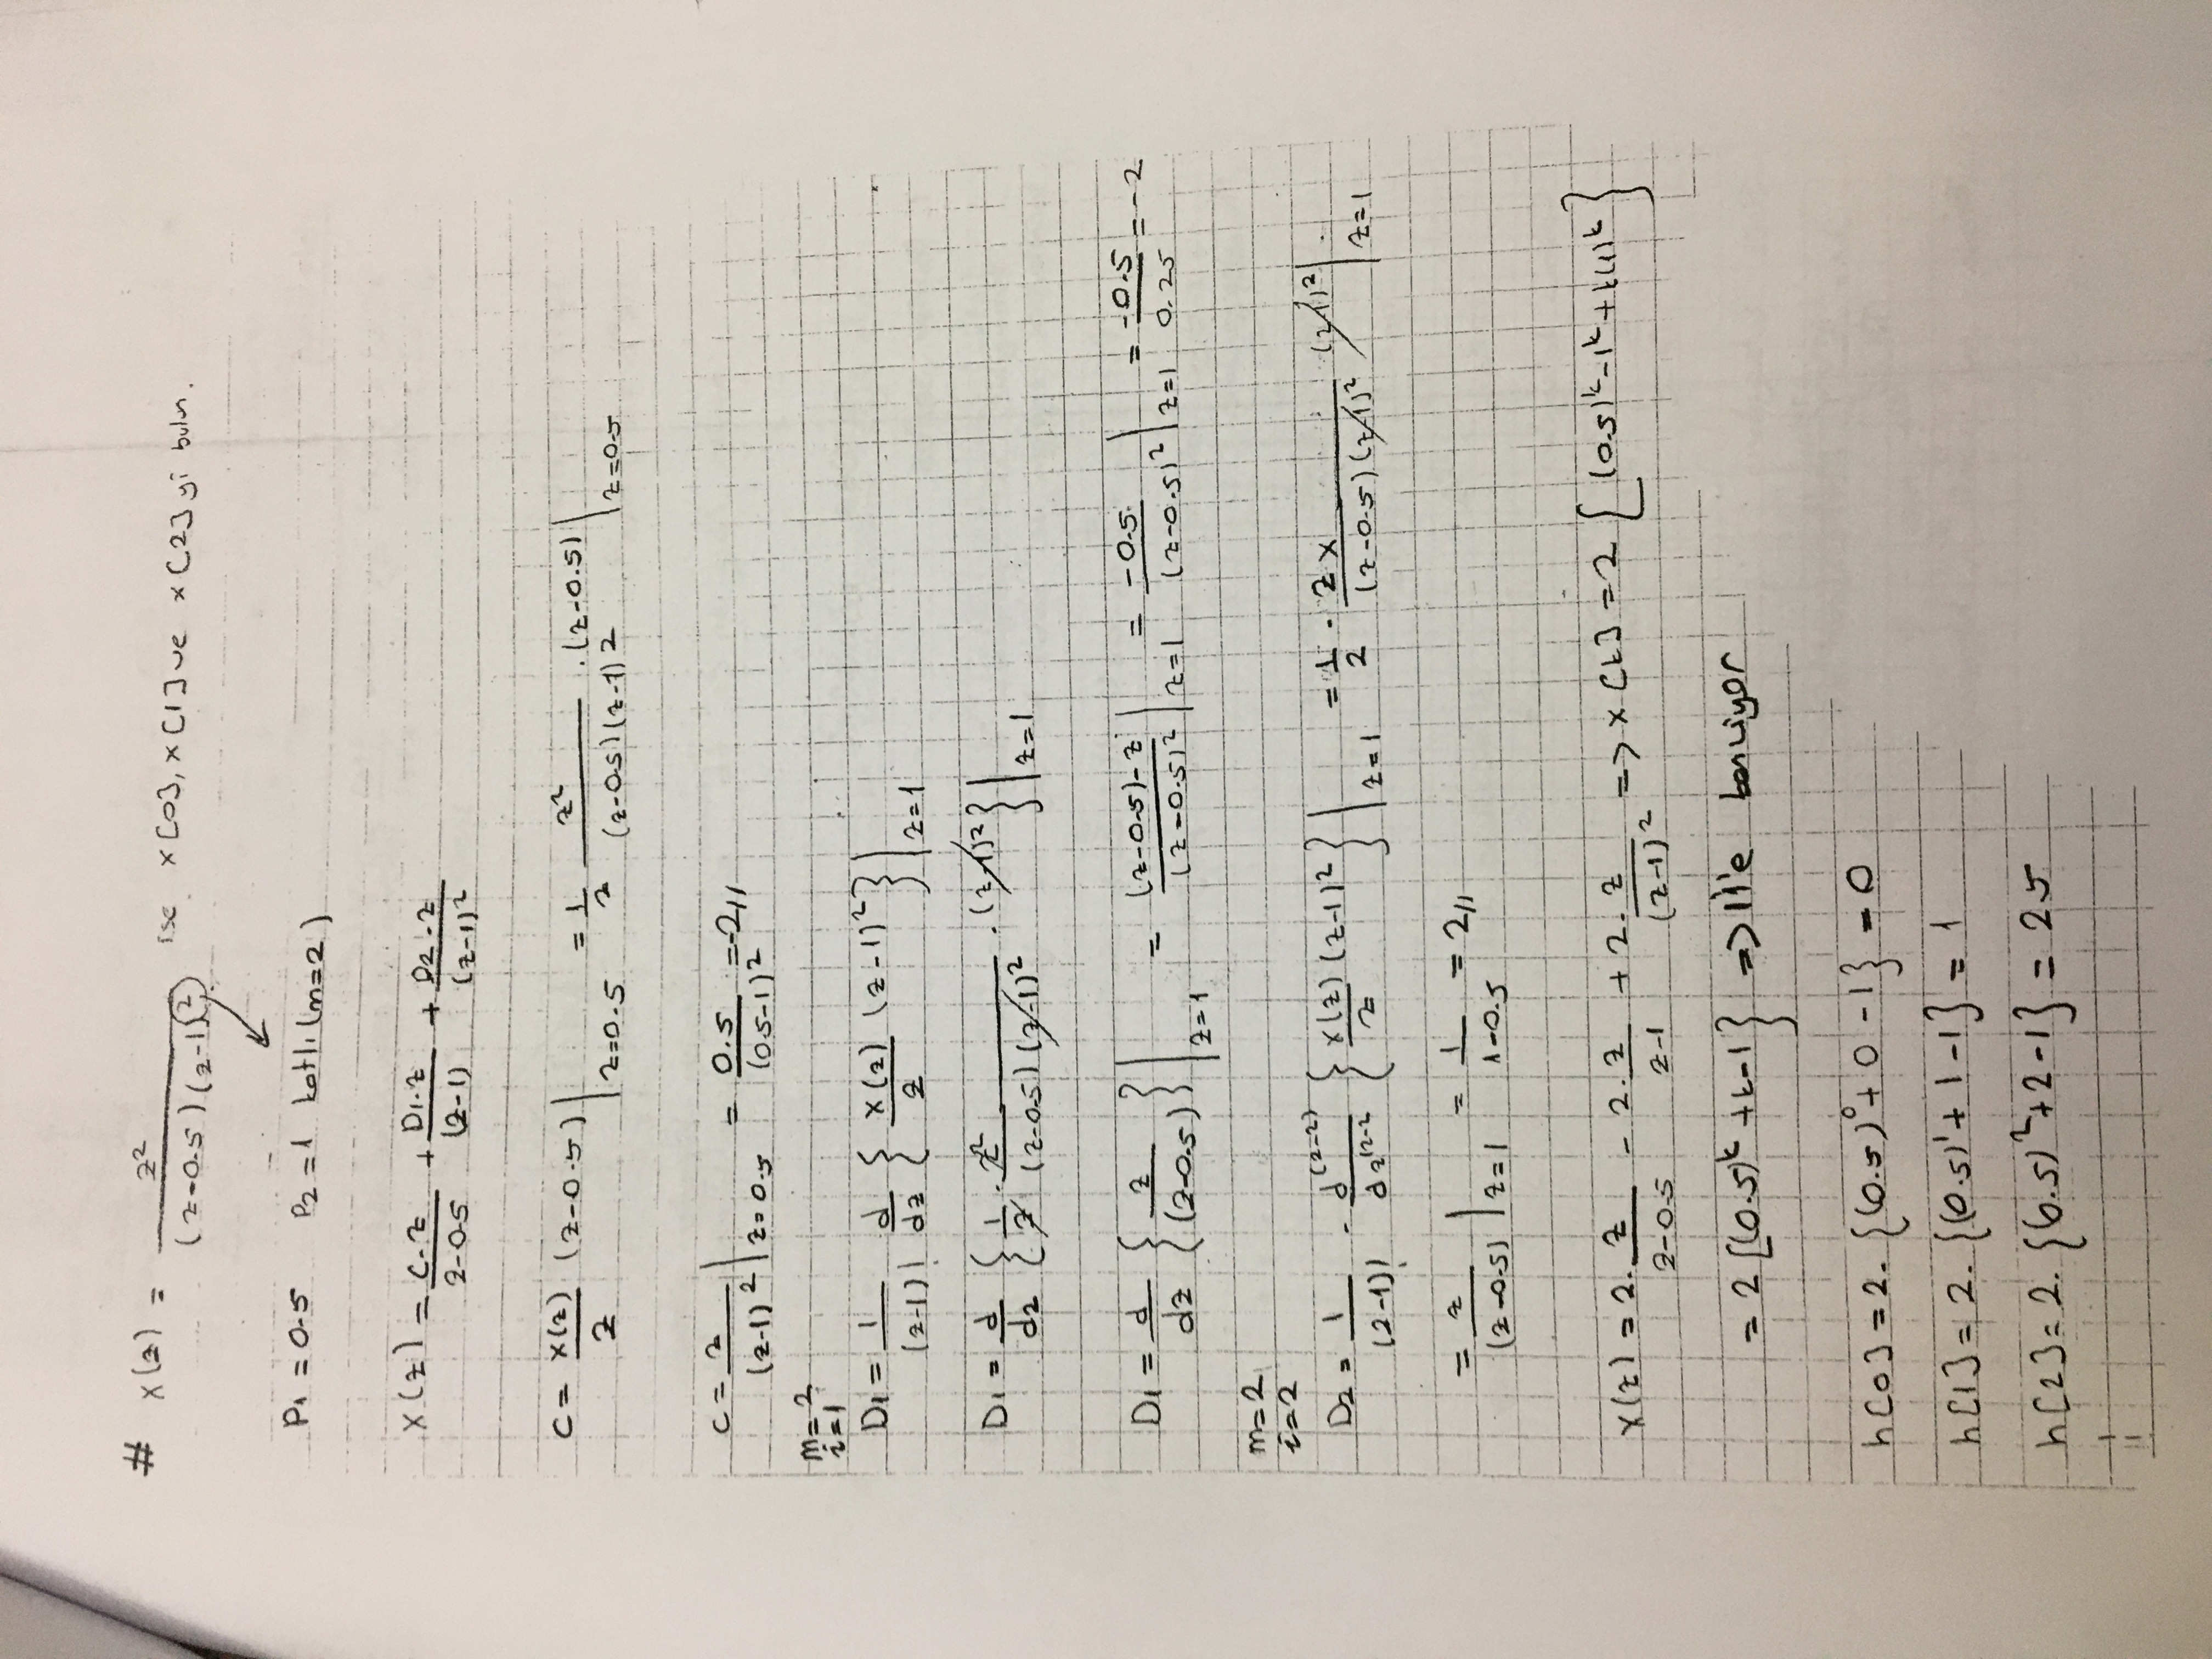 # x(z) = z² / (z-0.5)(z-1)² ise x[0], x[1] ve x[2] yi bulun.
P₁ = 0.5 P₂ = 1 katlı (m=2)
X(z) = C.z / z-0.5 + D₁.z / (z-1) + D₂.z / (z-1)²
C = X(z)/z (z-0.5) |z=0.5 = 1/z z² / (z-0.5)(z-1)² . (z-0.5) |z=0.5
C = z / (z-1)² |z=0.5 = 0.5 / (0.5-1)² = 2//
m=2
i=1
D₁ = 1/(2-1)! d/dz { X(z)/z (z-1)² } |z=1
D₁ = d/dz { 1/z . z² / (z-0.5)(z-1)² . (z-1)² } |z=1
D₁ = d/dz { z / (z-0.5) } |z=1 = (z-0.5)-z / (z-0.5)² |z=1 = -0.5 / (z-0.5)² |z=1 = -0.5 / 0.25 = -2
m=2
i=2
D₂ = 1/(2-1)! - d⁽²⁻²⁾/dz⁽²⁻² { X(z)/z (z-1)² } |z=1 = 1/z . z² / (z-0.5)(z-1)² (z-1)² |z=1
= z / (z-0.5) |z=1 = 1 / 1-0.5 = 2//
X(z) = 2. z / z-0.5 - 2. z / z-1 + 2. z / (z-1)² => x[k] = 2 [ (0.5)ᵏ-1ᵏ+k(1)ᵏ }
= 2 [(0.5)ᵏ + k-1 } =>
h[0] = 2. {(0.5)⁰ + 0 - 1} = 0
h[1] = 2. {(0.5)¹ + 1 - 1} = 1
h[2] = 2. {(0.5)² + 2 - 1} = 2.5